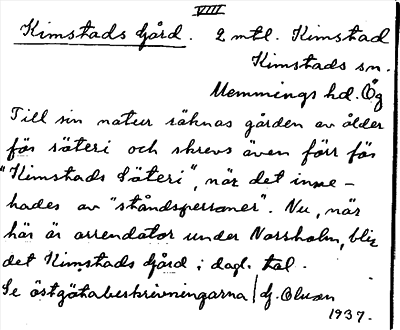 VIII
Kimstads Gård. 2 mtl. Kimstad
Kimstads sn.
Memmings hd. Ög
Till sin natur räknas gården av ålder
för säteri och skrevs även förr för
"Kimstads Säteri", när det inne-
hades av "ståndspersoner". Nu, när
här är arrendator under Norsholm, blir
det Kimstads Gård i dagl. tal.
Se östgötabeskrivningarna / G. Olsson
1937.